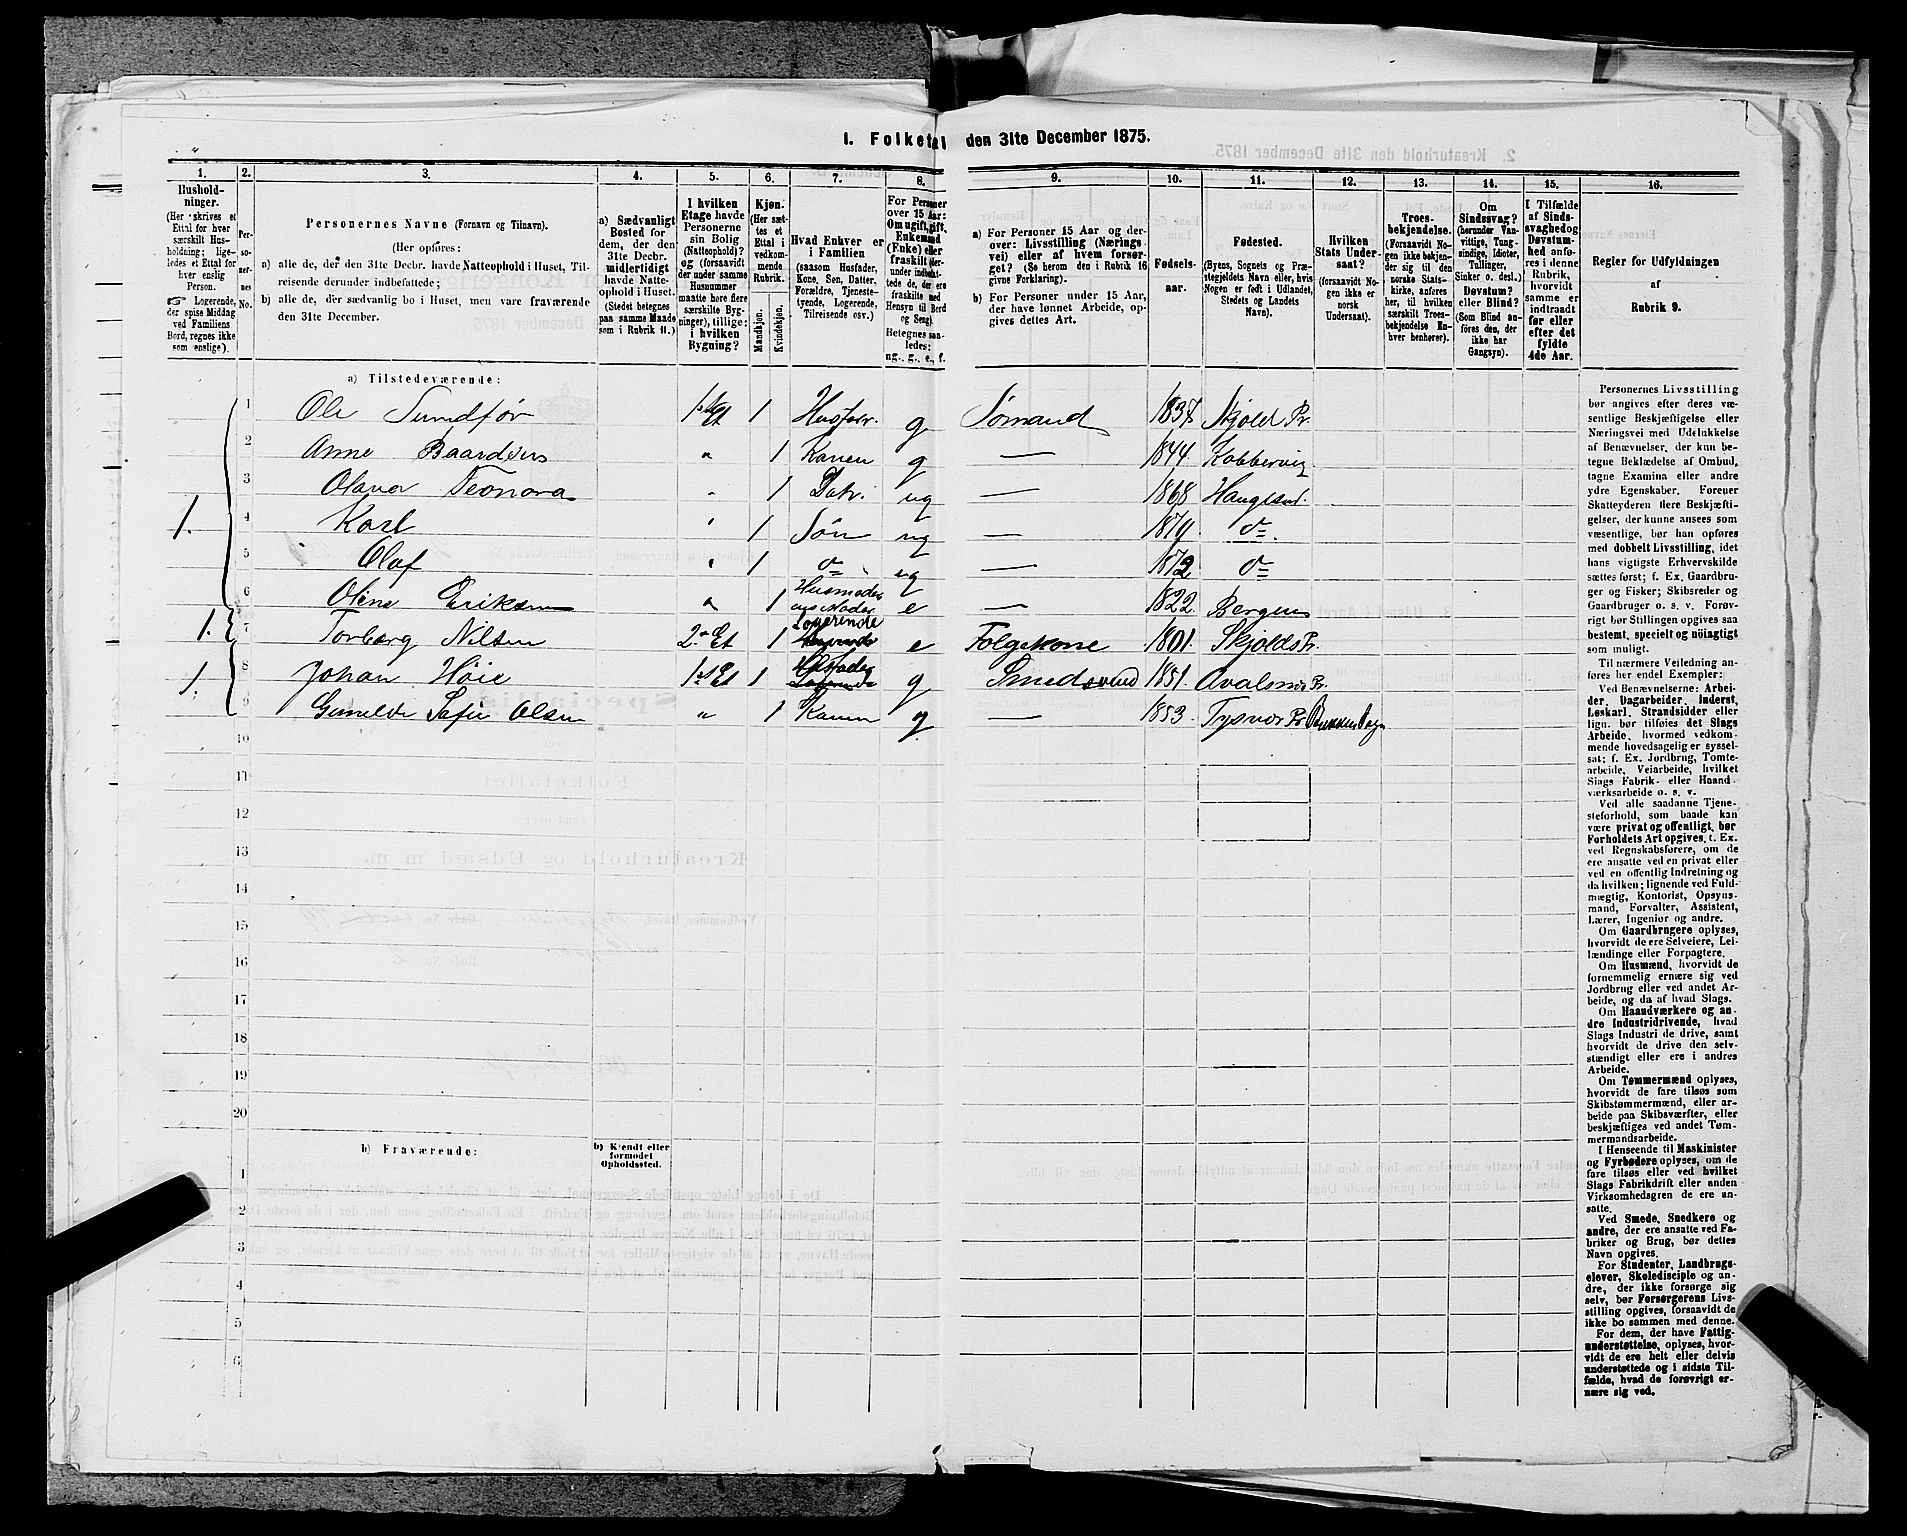 1. Folketal den 31te December 1875.
1. 2. 3. 4. 5. 6. 7. 8. 9. 10. 11. 12. 13. 14. 15. 16.
Hushold-
ninger.
(Her skrives et
Ettal for hver
særskilt Hus-
holdning; lige-
ledes et Ettal for
hver enslig
Person.
☞ Logerende,
der spise Middag
ved Familiens
Bord, regnes ikke
som enslige).
Per-
so-
ner-
nes
No.
Personernes Navne (Fornavn og Tilnavn).
(Her opføres:
a) alle de, der den 31te Decbr. havde Natteophold i Huset, Til-
reisende derunder indbefattede;
b) alle de, der sædvanlig bo i Huset, men vare fraværende
den 31te December.
a) Sædvanligt
Bosted for
dem, der den
31te Decbr.
midlertidigt
havde Natte-
ophold i Huset.
(Stedet betegnes
paa samme Maade
som i Rubrik 11.)
I hvilken
Etage havde
Personerne
sin Bolig
(Natteophold)?
og (forsaavidt
der under samme
Husnummer
maatte høre flere
særskilte Byg-
ninger), tillige:
i hvilken
Bygning?
Kjøn.
(Her sæt-
tes et
Ettal i
vedkom-
mende
Rubrik.
Mandkjøn.
Kvindekjøn.
Hvad Enhver er
i Familien
(saasom Husfader,
Kone, Søn, Datter,
Forældre, Tjeneste-
tyende, Logerende,
Tilreisende osv.)
For Personer
over 15 Aar:
Om ugift, gift,
Enkemand
(Enke) eller
fraskilt
Betegnes saa-
ledes:
ug., g., e., f.
a) For Personer 15 Aar og der-
over: Livsstilling (Nærings-
vei) eller af hvem forsør-
get? (Se herom den i Rubrik 16
givne Forklaring).
b) For Personer under 15 Aar,
der have lønnet Arbeide, op-
gives dettes Art.
Fødsels-
aar.
Fødested.
(Byens, Sognets og Præ-
stegjeldets Navn eller, hvis
Nogen er født i Udlandet,
Stedets og Landets
Navn).
Hvilken
Stats Under-
saat?
(forsaavidt No-
gen ikke er
norsk
Undersaat).
Troes-
bekjendelse.
(Forsaavidt No-
gen ikke bekjen-
der sig til den
norske Stats-
kirke, anføres
her, til hvilken
særskilt Troes-
bekjendelse En-
hver henhører).
Om
Sindssvag?
(herunder Van-
vittige, Tung-
sindige, Idioter,
Tullinger,
Sinker o. desl.)
Døvstum?
eller Blind?
(Som Blind an-
føres den, der
ikke har
Gangsyn).
I Tilfælde
af Sinds-
svaghed og
Døvstum-
hed anfø-
res i denne
Rubrik,
hvorvidt
samme er
indtraadt
før eller
efter det
fyldte
4de Aar.
Regler for Udfyldningen
af
Rubrik 9.
a) Tilstedeværende:
1 Ole Sundfør 1ste Et 1 Husfader g Sømand 1837 Skjold Pr.
2 Anne Baardsen " 1 Konen g — 1844 Kobbervig
3 Olava Leonora " 1 Datr. ug — 1868 Haugesund.
1. 4 Karl " 1 Søn ug — 1870 do
5 Olaf " 1 do ug — 1872 do
6 Oline Eriksen " 1 Husmoder e — 1822 Bergen
1. 7 Torborg Nilsen 2. Et 1 Logerende e Folgekone 1801 Skjolds Pr.
1. 8 Johan Høie 1ste Et 1 Husfader Logerende g Smedsvend 1851 Avalsnæs Pr.
9 Gunelde Sofie Olsen " 1 Konen g — 1853 Tysnæs Pr
10
11
12
13
14
15
16
17
18
19
20
b) Fraværende:
b) Kjendt eller
formodet
Opholdssted.
1
2
3
4
5
6
Personernes Livsstilling
bør angives efter deres væ-
sentlige Beskjæftigelse eller
Næringsvei med Udelukkelse
af Benævnelser, der kun be-
tegne Beklædelse af Ombud,
tagne Examina eller andre
ydre Egenskaber. Forener
Skatteyderen flere Beskjæfti-
gelser, der kunne ansees som
væsentlige, bør han opføres
med dobbelt Livsstilling, idet
hans vigtigste Erhvervskilde
sættes først; f. Ex. Gaardbru-
ger og Fisker; Skibsreder og
Gaardbruger o. s. v. Forøv-
rigt bør Stillingen opgives saa
bestemt, specielt og nøiagtigt
som muligt.
Til nærmere Veiledning an-
føres her endel Exempler:
Ved Benævnelserne: Arbei-
der, Dagarbeider, Inderst,
Løskarl, Strandsidder eller
lign. bør tilføies det Slags
Arbeide, hvormed vedkom-
mende hovedsagelig er syssel-
sat; f. Ex. Jordbrug, Tomte-
arbeide, Veiarbeide, hvilket
Slags Fabrik- eller Haand-
værksarbeide o. s. v.
Ved alle saadanne Tjene-
steforhold, som baade kan
være privat og offentligt, bør
Forholdets Art opgives, t. Ex.
ved Regnskabsførere, om de
ere ansatte ved en privat eller
ved en offentlig Indretning og
da hvilken; lignende ved Fuld-
mægtig, Kontorist, Opsyns-
mand, Forvalter, Assistent,
Lærer, Ingeniør og andre.
Om Gaardbrugere oplyses,
hvorvidt de ere Selveiere, Lei-
lændinge eller Forpagtere.
Om Husmænd, hvorvidt de
fornemmelig ernære sig ved
Jordbrug eller ved andet Ar-
beide, og da af hvad Slags.
Om Haandværkere og an-
dre Industridrivende, hvad
Slags Industri de drive, samt
hvorvidt de drive den selv-
stændigt eller ere i andres
Arbeide.
Om Tømmermænd oplyses,
hvorvidt de fare tilsøs som
Skibstømmermænd, eller ar-
beide paa Skibsværfter, eller
beskjæftiges ved andet Tøm-
mermandsarbeide.
I Henseende til Maskinister
og Fyrbødere oplyses, om de
fare tilsøs eller ved hvilket
Slags Fabrikdrift eller anden
Virksomhedsgren de ere an-
satte.
Ved Smede, Snedkere og
andre, der ere ansatte ved Fa-
briker og Brug, bør dettes
Navn opgives.
For Studenter, Landbrugs-
elever, Skoledisciple og an-
dre, der ikke forsørge sig
selv, bør Forsørgerens Livs-
stilling opgives, forsaavidt de
ikke bo sammen med denne.
For dem, der have Fattig-
understøttelse, oplyses, hvor-
vidt de ere helt eller delvis
understøttede og i sidste Til-
fælde, hvad de forøvrigt er-
nære sig ved.